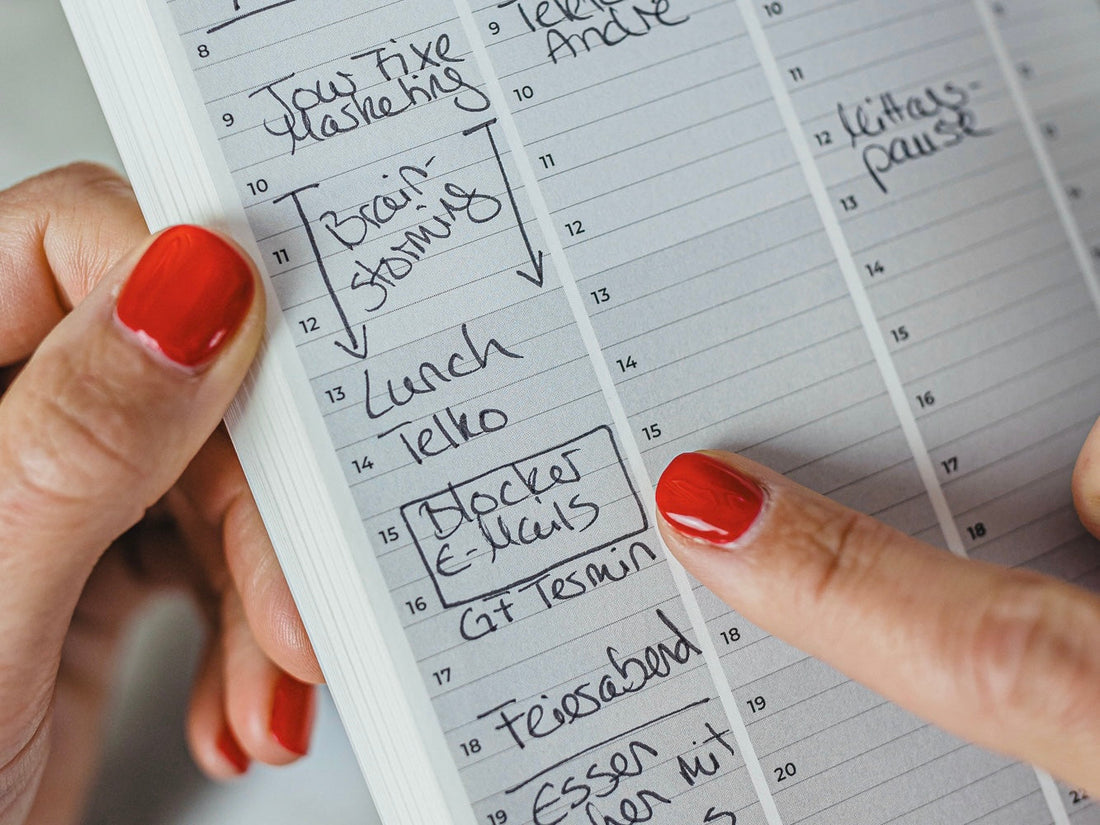 8
9
Jour Fixe
Marketing
10
Brain-
storming
11
12
13
Lunch
14
Telko
15
Blocker
E-Mails
16
GF Termin
17
18
Feierabend
19
Essen
mit
9
André
10
11
12
13
14
15
18
19
20
10
11
12
Mittags-
pause
13
14
15
16
17
18
22